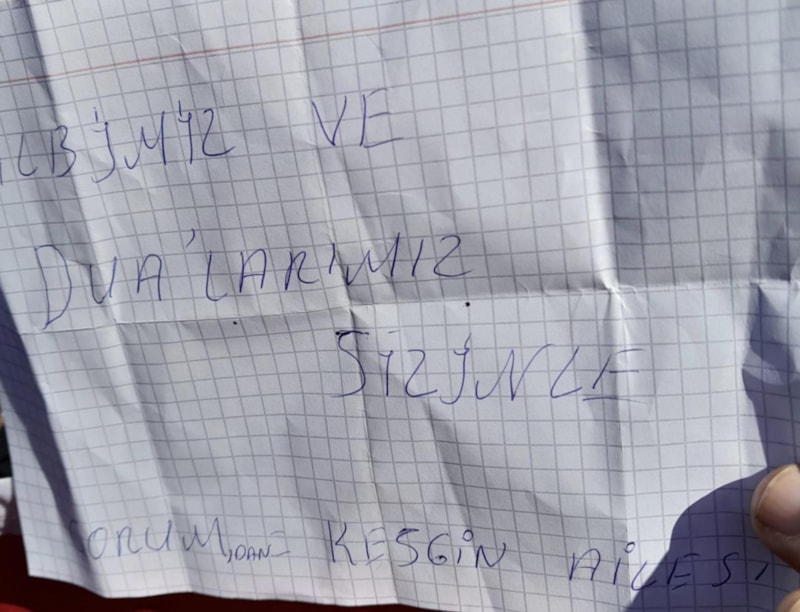 LBİMİZ VE
DUA'LARIMIZ
SİZİNLE
ORUM,DAN KESGİN AİLESİ